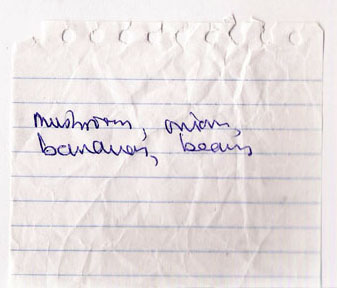 mushrooms, onions,
bananas, beans